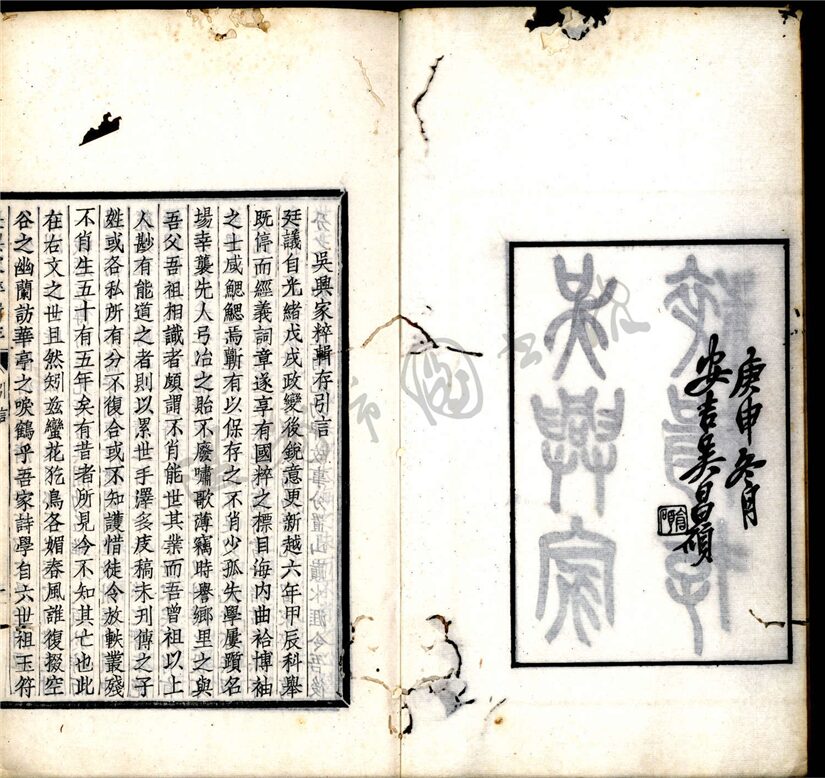 庚申冬月
安吉吳昌碩
吳興家粹輯存引言
廷議自光緒戊戌政變後銳意更新越六年甲辰科舉
既停而經義詞章遂享有國粹之標目海內曲袷博袖
之士咸鰓鰓焉蘄有以保存之不肖少孤失學屢躓名
場幸襲先人弓冶之貽不廢嘯歌薄竊時譽鄉里之與
吾父吾祖相識者頗謂不肖能世其業而吾曾祖以上
人尠有能道之者則以累世手澤多庋稿未刊傳之子
姓或各私所有分不復合或不知護惜徒令放軼叢殘
不肖生五十有五年矣有昔者所見今不知其亡也此
在右文之世且然矧茲蠻花犵鳥各媚春風誰復掇空
谷之幽蘭訪華亭之唳鶴乎吾家詩學自六世祖玉符
引言